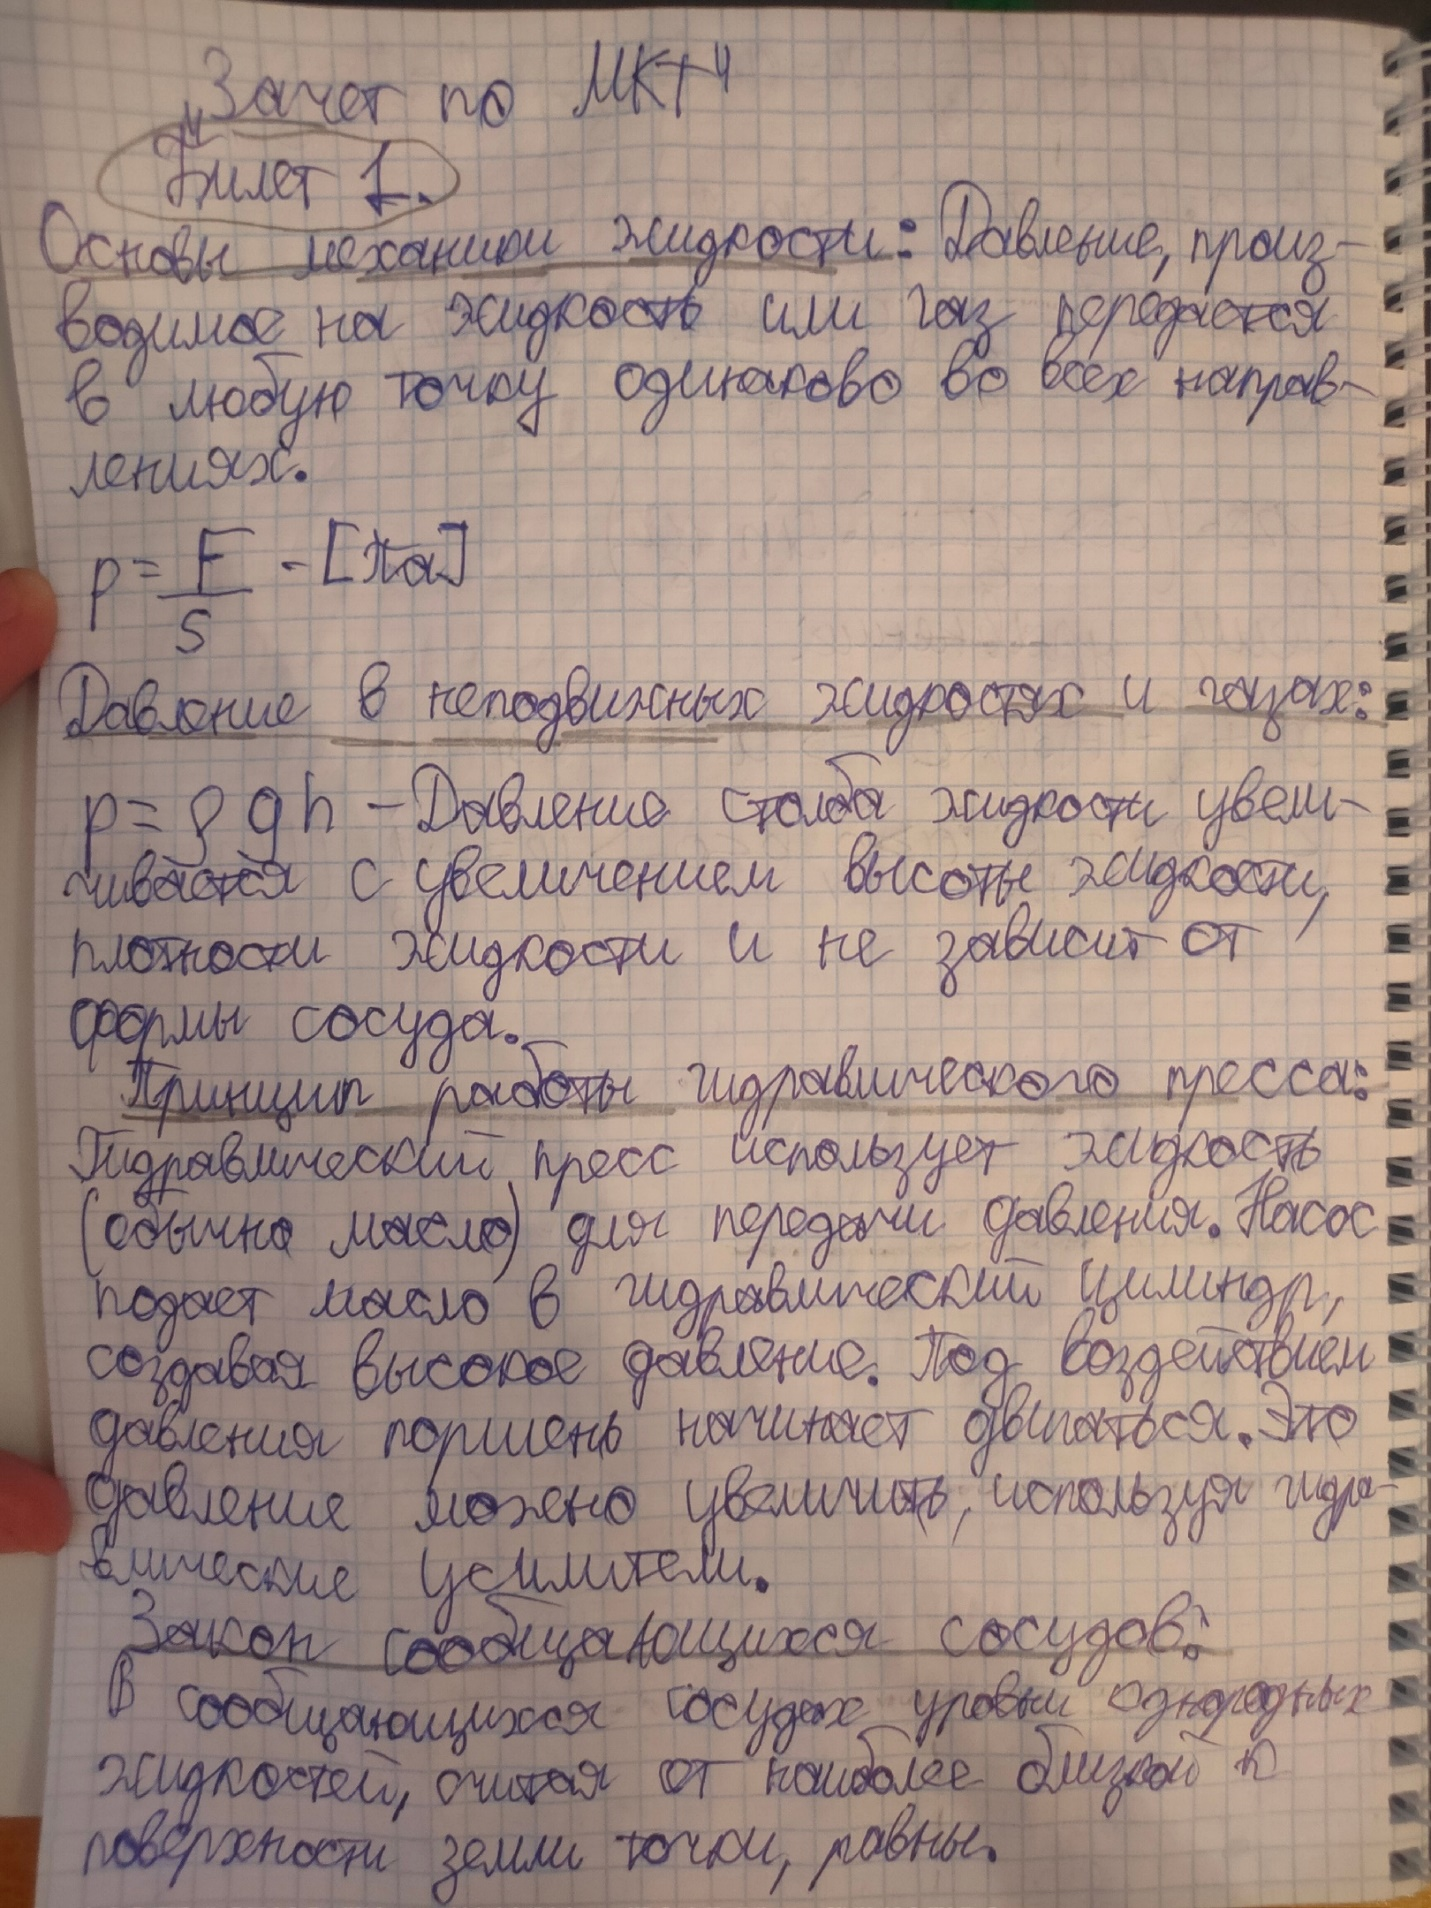 "Зачет по МКТ"
Билет 1.
Основы механики жидкости: Давление, произ-
водимое на жидкость или газ передается
в любую точку одинаково во всех направ-
лениях.
p = F/S - [Па]
Давление в неподвижных жидкостях и газах:
p = ρgh - Давление столба жидкости увели-
чивается с увеличением высоты жидкости,
плотности жидкости и не зависит от
формы сосуда.
Принцип работы гидравлического пресса:
Гидравлический пресс использует жидкость
(обычно масло) для передачи давления. Насос
подает масло в гидравлический цилиндр,
создавая высокое давление. Под воздействием
давления поршень начинает двигаться. Это
давление можно увеличить, используя гидра-
влические усилители.
Закон сообщающихся сосудов:
В сообщающихся сосудах уровни однородных
жидкостей, считая от наиболее близкой к
поверхности земли точки, равны.